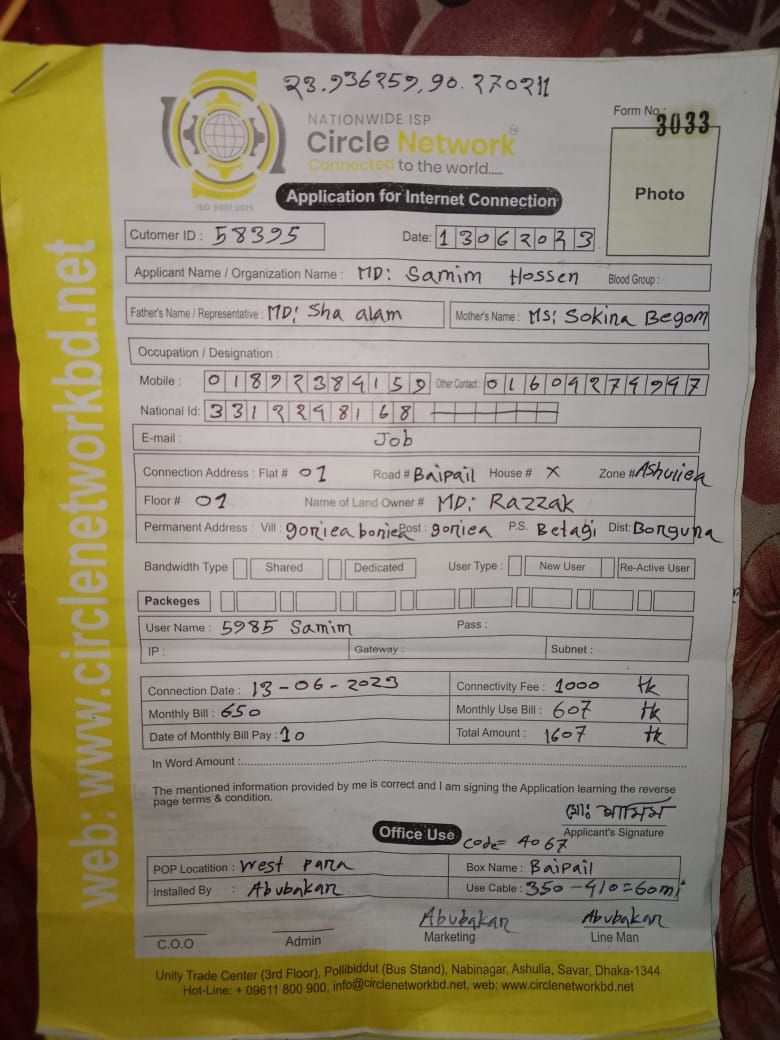 23.936259,90.270211
NATIONWIDE ISP
Circle Network
Connected to the world.....
ISO 9001:2015
Form No.: 3033
Photo
Application for Internet Connection
Cutomer ID : 58395 Date: 13062023
Applicant Name / Organization Name : MD: Samim Hossen Blood Group :
Father's Name / Representative : MD: Sha alam Mother's Name : MS: Sokina Begom
Occupation / Designation :
Mobile : 01892384159 Other Contact: 01604274947
National Id: 3312248168
E-mail : Job
Connection Address : Flat # 01 Road # Baipail House # X Zone # Ashuliea
Floor # 01 Name of Land Owner # MD: Razzak
Permanent Address : Vill : goriea boniea Post : goriea P.S. Betagi Dist: Borguna
Bandwidth Type Shared Dedicated User Type : New User Re-Active User
Packeges
User Name : 5985 Samim Pass :
IP : Gateway : Subnet :
Connection Date : 13-06-2023 Connectivity Fee : 1000 tk
Monthly Bill : 650 Monthly Use Bill : 607 tk
Date of Monthly Bill Pay : 10 Total Amount : 1607 tk
In Word Amount :
The mentioned information provided by me is correct and I am signing the Application learning the reverse
page terms & condition.
মোঃ শামিম
Applicant's Signature
Office Use code= 4067
POP Locatition : West para Box Name : Baipail
Installed By : Abubakar Use Cable : 350-410=60m
C.O.O Admin Abubakar Marketing Abubakar Line Man
Unity Trade Center (3rd Floor), Pollibiddut (Bus Stand), Nabinagar, Ashulia, Savar, Dhaka-1344
Hot-Line: + 09611 800 900, info@circlenetworkbd.net, web: www.circlenetworkbd.net
web: www.circlenetworkbd.net